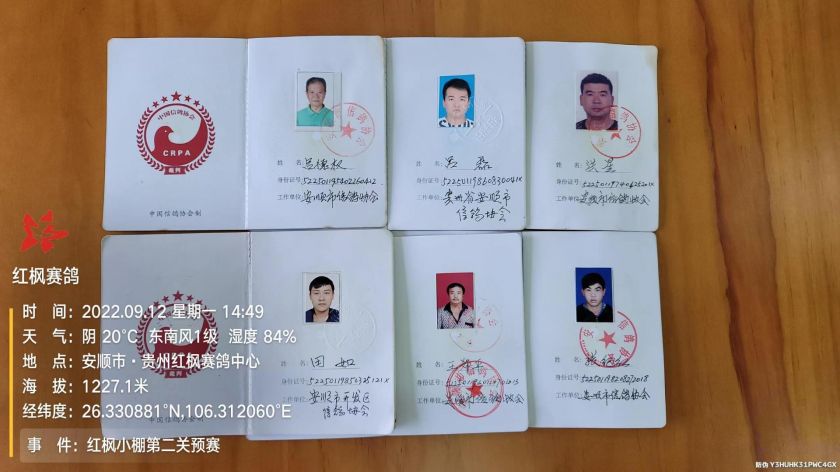 中国信鸽协会
CRPA
裁判
中国信鸽协会制
信鸽协会
姓 名: 吕德权
身份证号: 522501195402260412
工作单位: 安顺市信鸽协会
姓 名: 吕磊
身份证号: 52250119860830041X
工作单位: 贵州省安顺市
信鸽协会
信鸽协会
姓 名:
身份证号: 52250119740625201X
工作单位: 安顺市信鸽协会
CRPA
裁判
姓 名: 田如
身份证号: 52250119850325121X
工作单位: 安顺市开发区
信鸽协会
姓 名: 王
身份证号:
工作单位: 安顺市信鸽协会
姓 名: 张
身份证号:
工作单位: 安顺市信鸽协会
红枫赛鸽
时 间: 2022.09.12 星期一 14:49
天 气: 阴 20°C 东南风1级 湿度 84%
地 点: 安顺市·贵州红枫赛鸽中心
海 拔: 1227.1米
经纬度: 26.330881°N,106.312060°E
事 件: 红枫小棚第二关预赛
防伪 Y3HUHK31PWC4GX